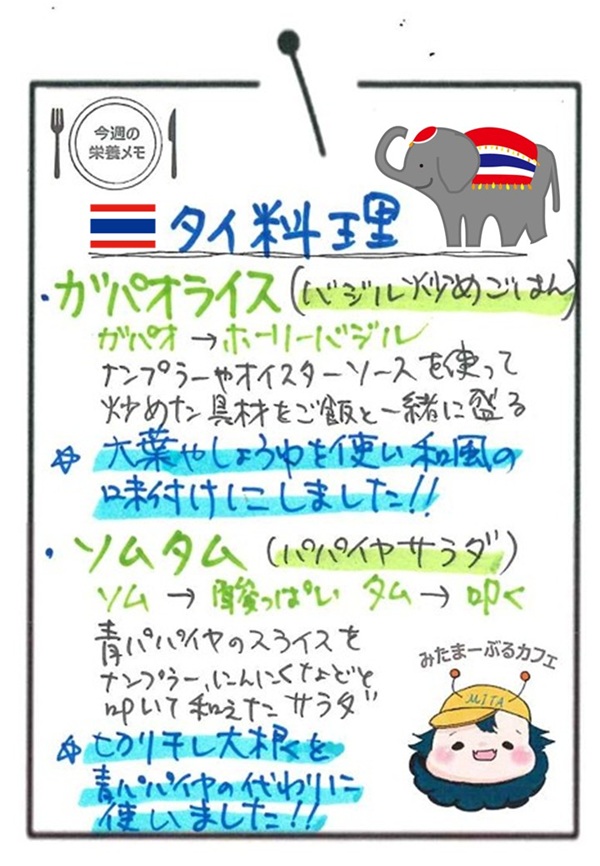 今週の
栄養メモ
タイ料理
・ガパオライス(バジル炒めごはん)
ガパオ→ホーリーバジル
ナンプラーやオイスターソースを使って
炒めた具材をご飯と一緒に盛る
☆大葉やしょうゆを使い和風の
味付けにしました!!
・ソムタム(パパイヤサラダ)
ソム→酸っぱい タム→叩く
青パパイヤのスライスを
ナンプラー、にんにくなどと
叩いて和えたサラダ
☆切り干し大根を
青パパイヤの代わりに
使いました!!
みたまーぶるカフェ
MITA